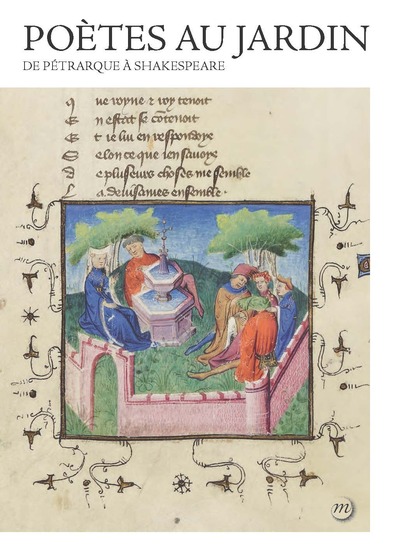 POÈTES AU JARDIN
DE PÉTRARQUE À SHAKESPEARE
Q ue royne & roy tenoit
E n estat se cōtenoit
E t ie lui en respondoye
S elon ce que ien sauoye
D e pluseurs choses me semble
L a deuisames ensemble.
m